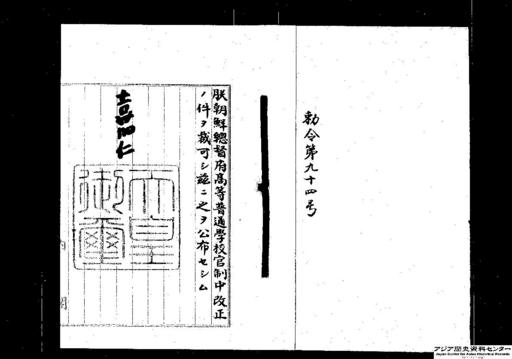 勅令第九十四号
朕朝鮮總督府高等普通學校官制中改正
ノ件ヲ裁可シ茲ニ之ヲ公布セシム
嘉仁
天皇
御璽
アジア歴史資料センター
Japan Center for Asian Historical Records